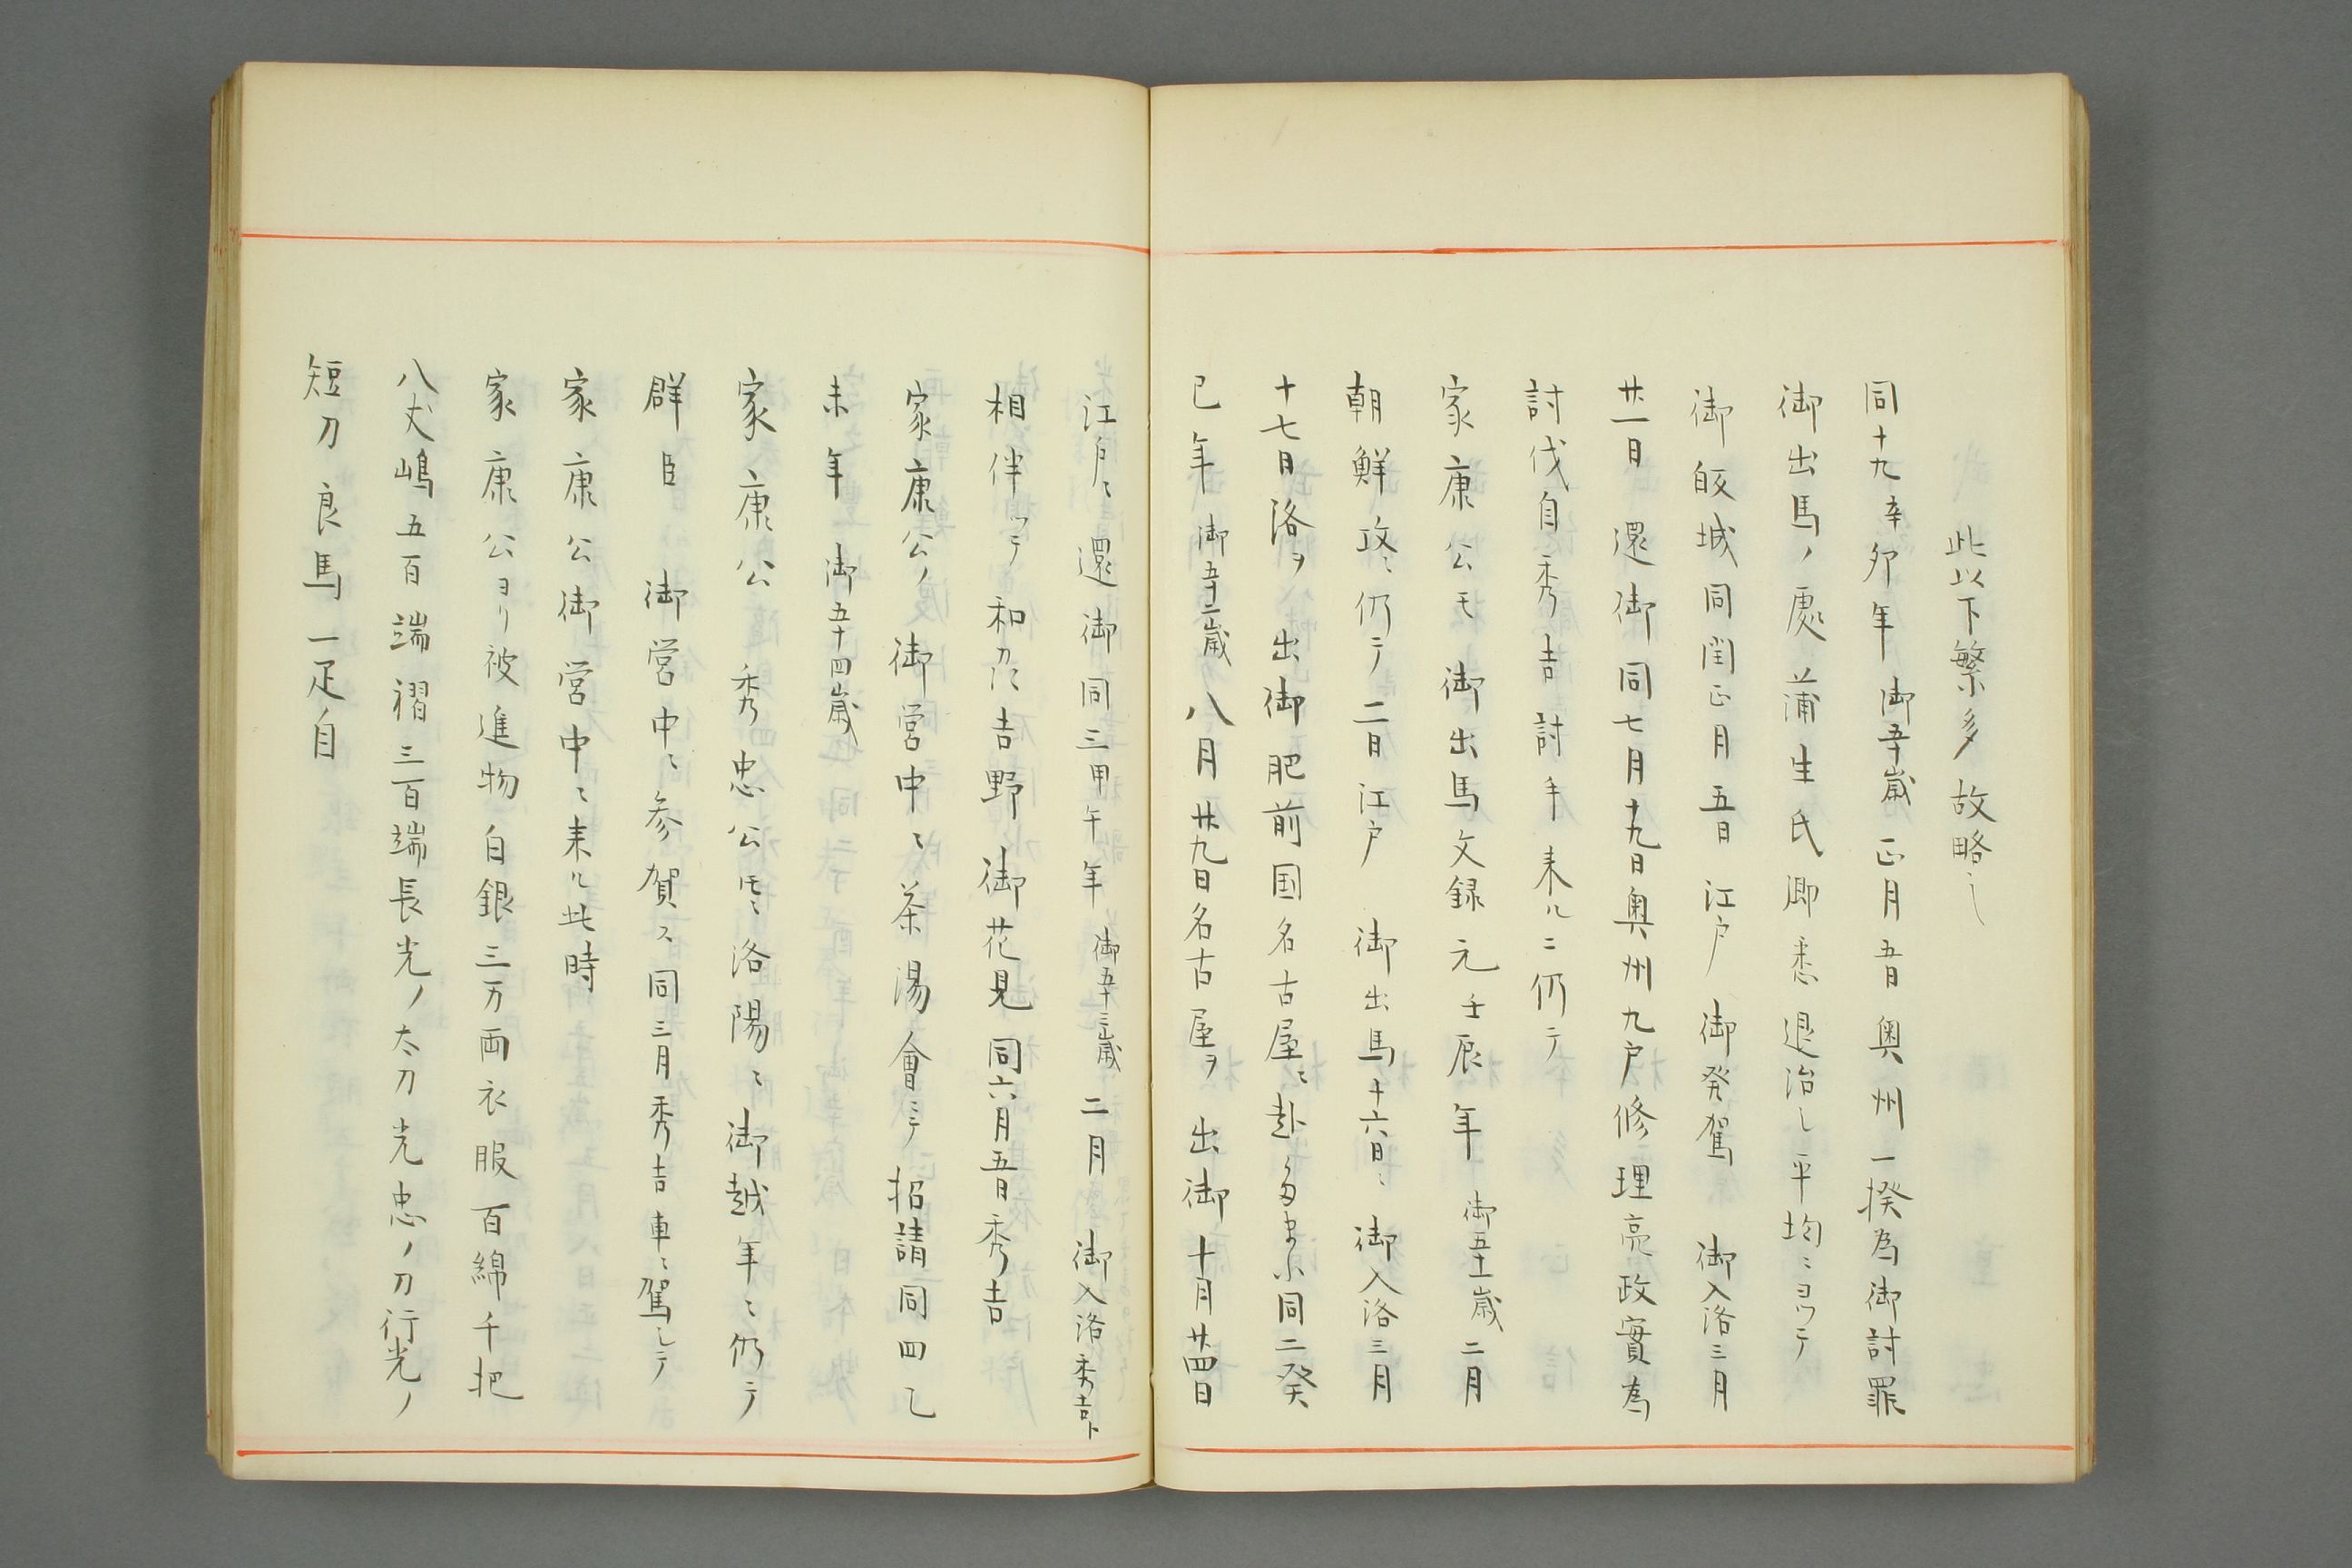 此以下繁多故略之
同十九辛卯年 御五十歳 正月五日奥州一揆為御討罪
御出馬ノ處蒲生氏卿悉退治シ平均ニヨツテ
御皈城同閏正月五日 江戸 御発駕 御入洛三月
廿一日 還御同七月十九日奥州九戸修理亮政實為
討伐自秀吉討手来ルニ仍テ
家康公モ 御出馬文録元壬辰年 御五十一歳 二月
朝鮮攻ニ仍テ二月江戸 御出馬十六日ニ 御入洛三月
十七日洛ヲ 出御肥前国名古屋ニ赴 同二癸
巳年 御五十二歳 八月廿九日名古屋ヲ 出御十月廿四日
江戸ニ 還御同三甲午年 御五十三歳 二月 御入洛秀吉ト
相伴ツテ 和刕吉野 御花見同六月五日秀吉
家康公ノ 御営中ニ茶湯會ニテ 招請同四乙
未年 御五十四歳
家康公 秀忠公トモニ洛陽ニ 御越年ニ仍テ
群臣 御営中ニ参賀ス同三月秀吉車ニ駕シテ
家康公御営中ニ来ル此時
家康公ヨリ被進物白銀三万両衣服百綿千把
八丈嶋五百端褶三百端長光ノ太刀光忠ノ刀行光ノ
短刀良馬一疋自